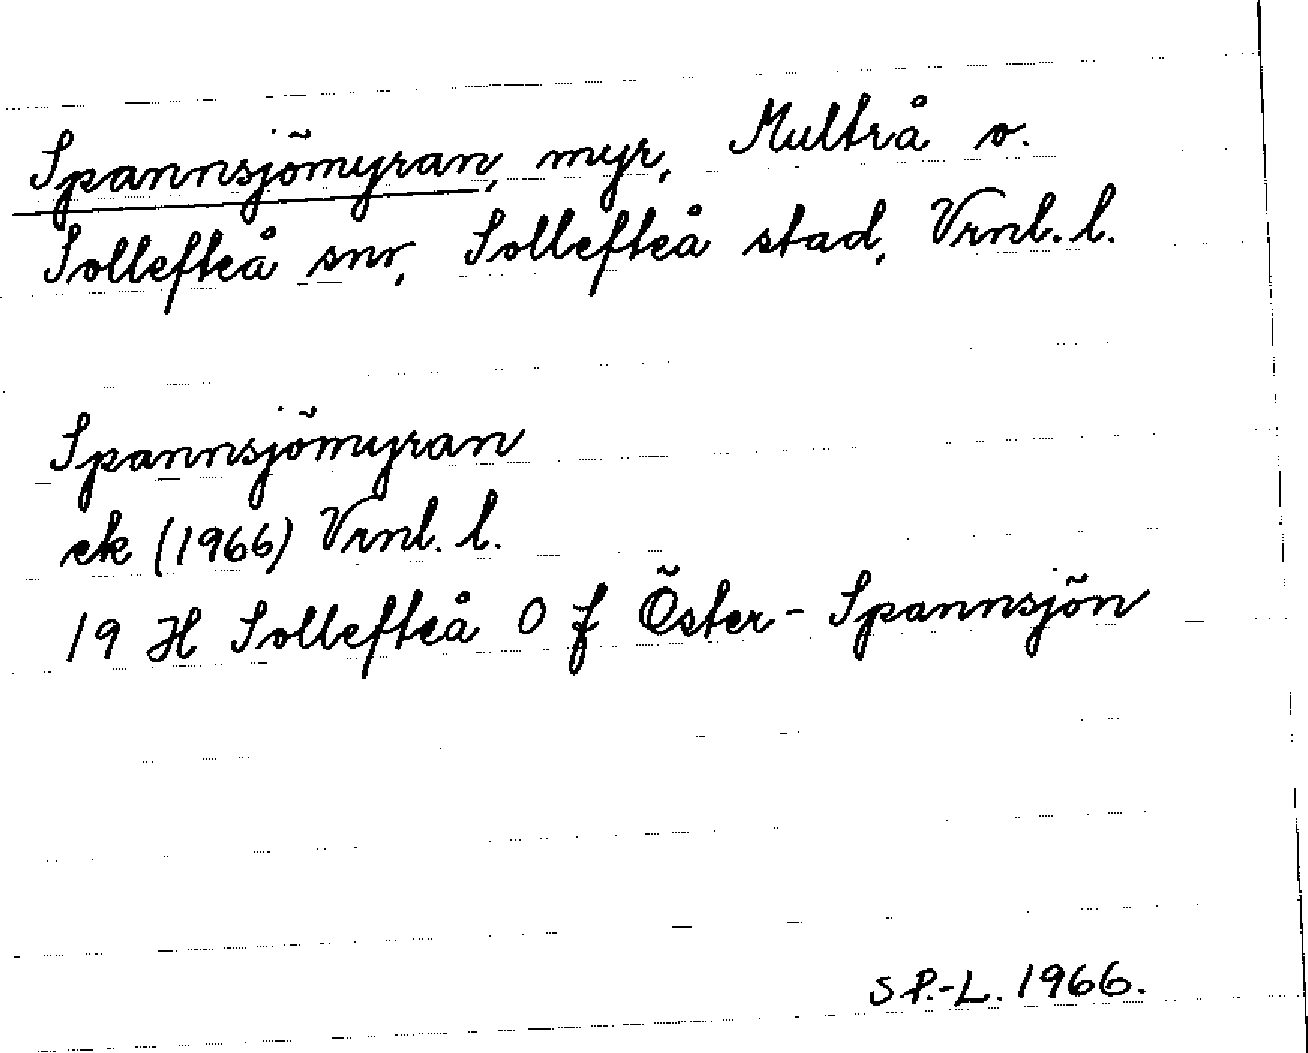 Spannsjömyran, myr, Multrå o.
Sollefteå snr, Sollefteå stad, Vrnl. l.
Spannsjömyran
ek (1966) Vrnl. l.
19 H Sollefteå O f Öster-Spannsjön
S P.-L. 1966.